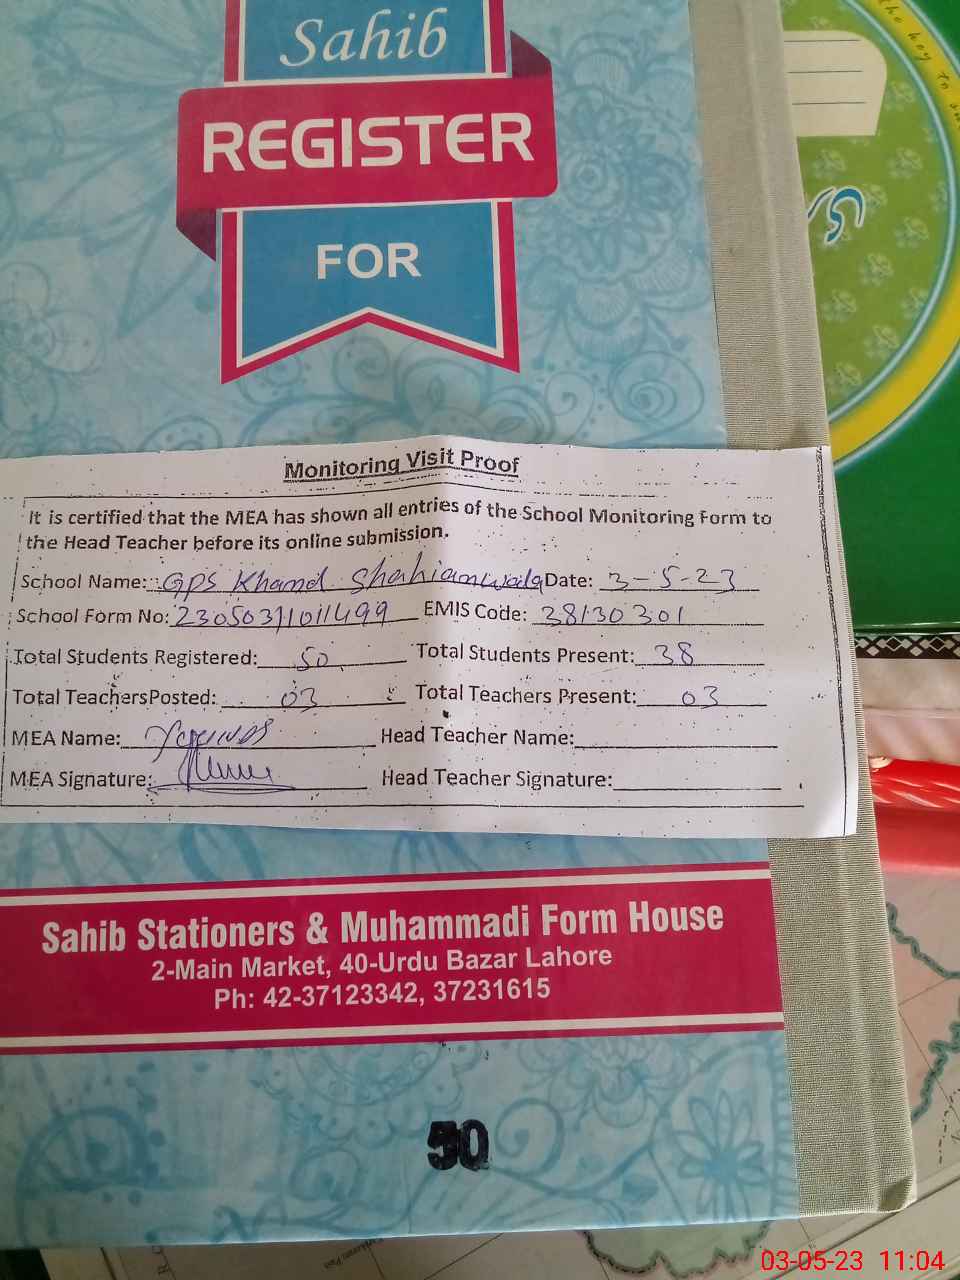 Sahib
REGISTER
FOR
the key to
Monitoring Visit Proof
It is certified that the MEA has shown all entries of the School Monitoring Form to
the Head Teacher before its online submission.
School Name: GPS Khamd Shahianwala Date: 3-5-23
School Form No: EMIS Code: 38130301
Total Students Registered: 50 Total Students Present: 38
Total TeachersPosted: 03 Total Teachers Present: 03
MEA Name: Head Teacher Name:
MEA Signature: Head Teacher Signature:
Sahib Stationers & Muhammadi Form House
2-Main Market, 40-Urdu Bazar Lahore
Ph: 42-37123342, 37231615
50
03-05-23 11:04